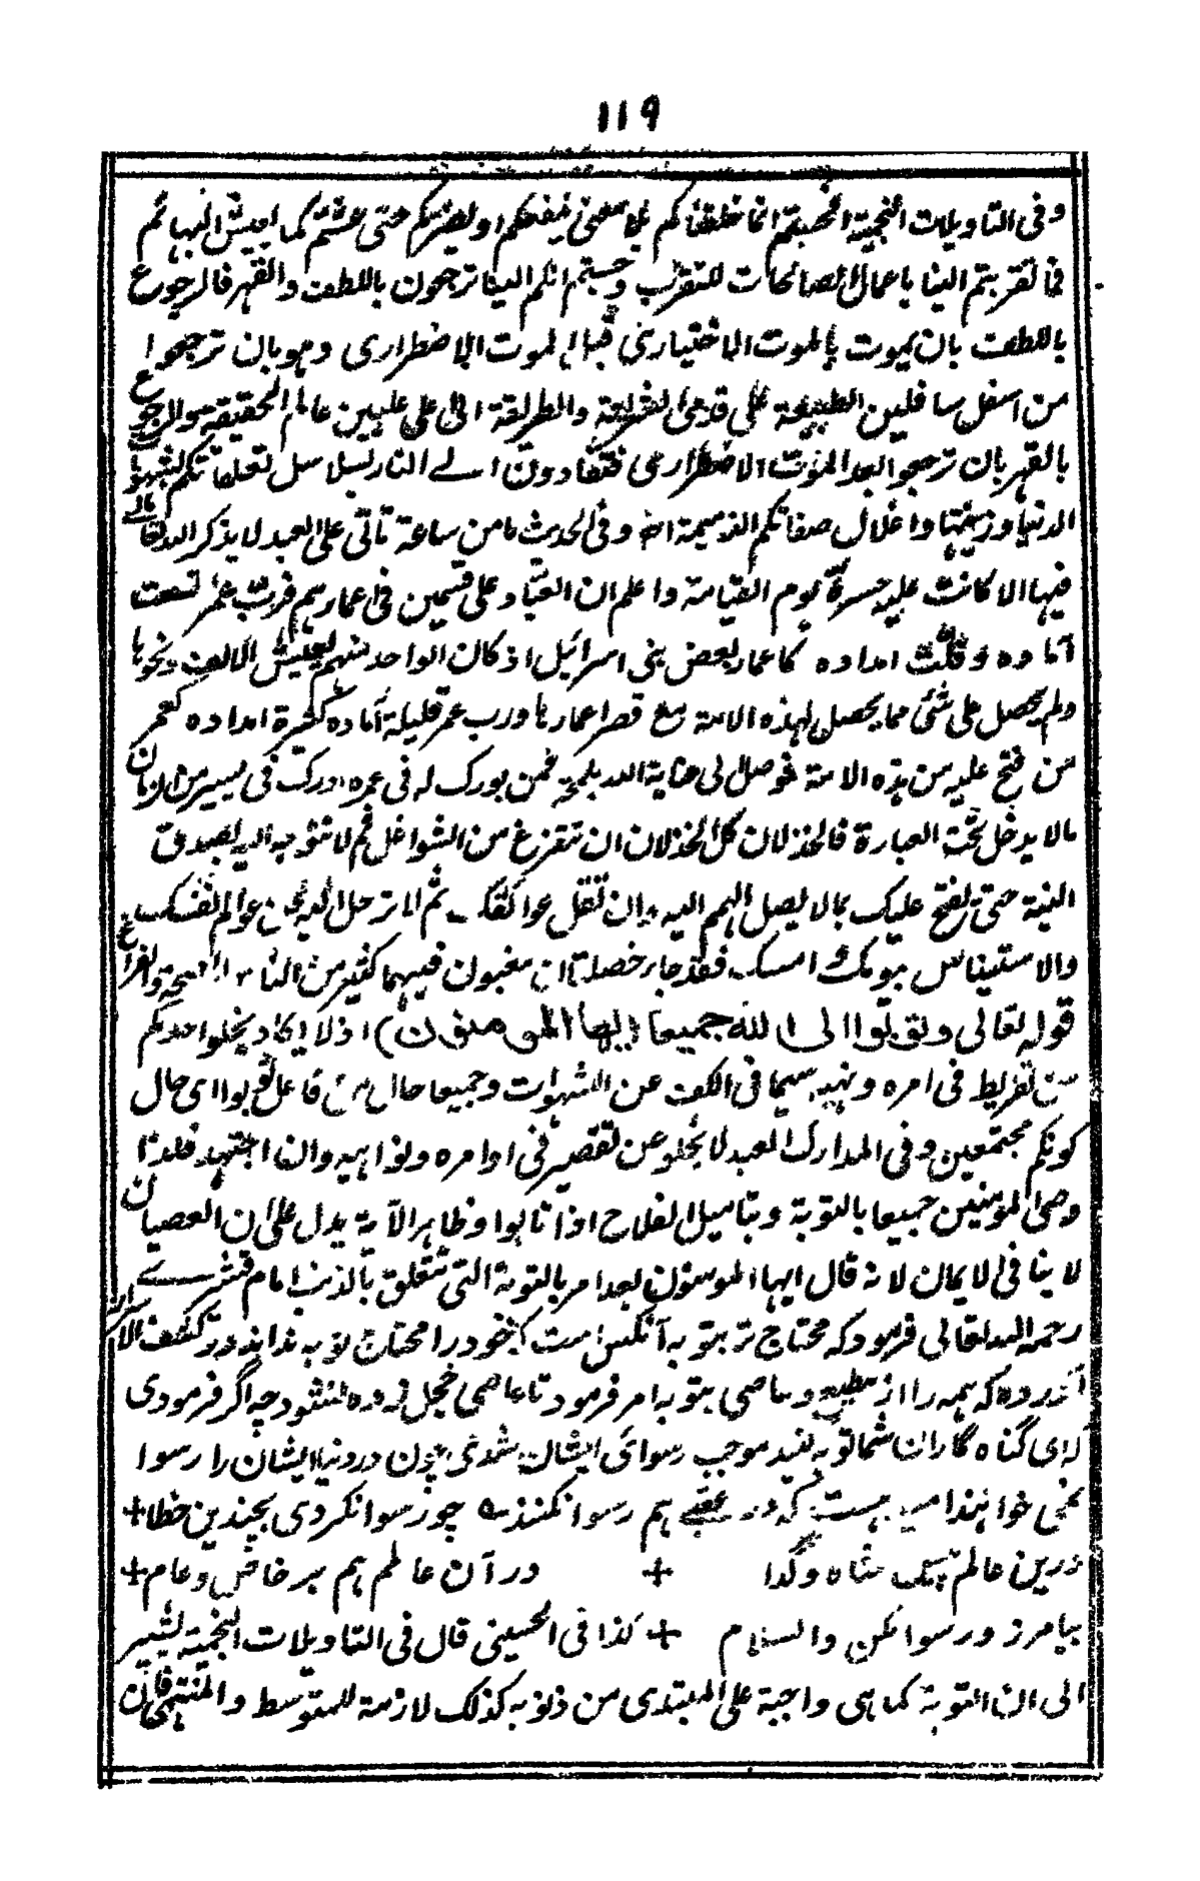 ١١٩
وفی التاویلات النجمیة افحسبتم انما خلقناکم بلا معنی ینفعکم او یضرکم حتی عشتم کما یعیش البهائم
فما تقربتم الینا باعمال الصالحات للتقرب وحسبتم انکم الینا ترجعون باللطف والقهر فالرجوع
باللطف بان یموت بالموت الاختیاری قبل الموت الاضطراری وهو بان ترجعوا
من اسفل سافلین الطبیعة علی قدمی الشریعة والطریقة الی اعلی علیین عالم الحقیقة والرجوع
بالقهر بان ترجعوا بعد الموت الاضطراری فتقادون الے النار بسلاسل تعلقاتکم بشهوات
الدنیا وزینتها واغلال صفاتکم الذمیمة انه وفی الحدیث ما من ساعة تأتی علی العبد لا یذکر الله تعالے
فیها الا کانت علیه حسرة یوم القیامة واعلم ان العباد علی قسمین فی اعمارهم فرب عمر تسعت
آماده وقلت امداده کاعمار بعض بنی اسرائیل اذ کان الواحد منهم یعیش الالف ونحوها
ولم یحصل علی شئی مما یحصل لهذه الامة مع قصر اعمارنا ورب عمر قلیلة آماده کثیرة امداده کعمر
من فتح علیه من هذه الامة فوصل الی عنایة الله بلمحة فمن بورک له فی عمره ادرک فی یسیر من الزمان
مالا یدخل تحت العبارة فالخذلان کل الخذلان ان تتفرغ من الشواغل ثم لا تتوجه الیه بصدق
النیة حتی یفتح علیک بما لا یصل الهمم الیه وان تقل عوائقک ثم لا ترحل الیه عن عوالم نفسک
والاستیناس بیومک وامسک فقد جاء خصلتان مغبون فیهما کثیر من الناس الصحة والفراغ
قوله تعالی وتوبوا الی الله جمیعا (ایها المومنون) اذ لا یکاد یخلو احدکم
من تفریط فی امره ونهیه سیما فی الکف عن الشهوات وجمیعا حال من فاعل توبوا ای حال
کونکم مجتمعین وفی المدارک العبد لا یخلو عن تقصیر فی اوامره ونواهیه وان اجتهد فلذا
وصی المومنین جمیعا بالتوبة وبتامیل الفلاح اذا تابوا وظاهر الآیة یدل علی ان العصیان
لا ینافی الایمان لانه قال ایها المومنون بعد امر بالتوبة التی تتعلق بالذنب امام قشیرے
رحمه الله تعالی فرمود که محتاج تر بتوبه آنکس است که خود را محتاج توبه نداند در کشف الاسرار
آورده که همه را از مطیع وعاصی بتوبه امر فرمود تا عاصی خجل زده نشود چه اگر فرمودی
که ای گناه گاران شما توبه کنید موجب رسوائی ایشان شدی چون در دنیا ایشان را رسوا
نمی خواهند امید هست که در عقبے هم رسوا نکنند چو رسوا نکردی بچندین خطا +
درین عالم پیش شاه وگدا + در آن عالم هم بر خاص وعام +
بیامرز ورسوا مکن والسلام + کذا فی الحسینی قال فی التاویلات النجمیة یشیر
الی ان التوبة کما هی واجبة علی المبتدی من ذنوبه کذلک لازمة للمتوسط والمنتهی فان